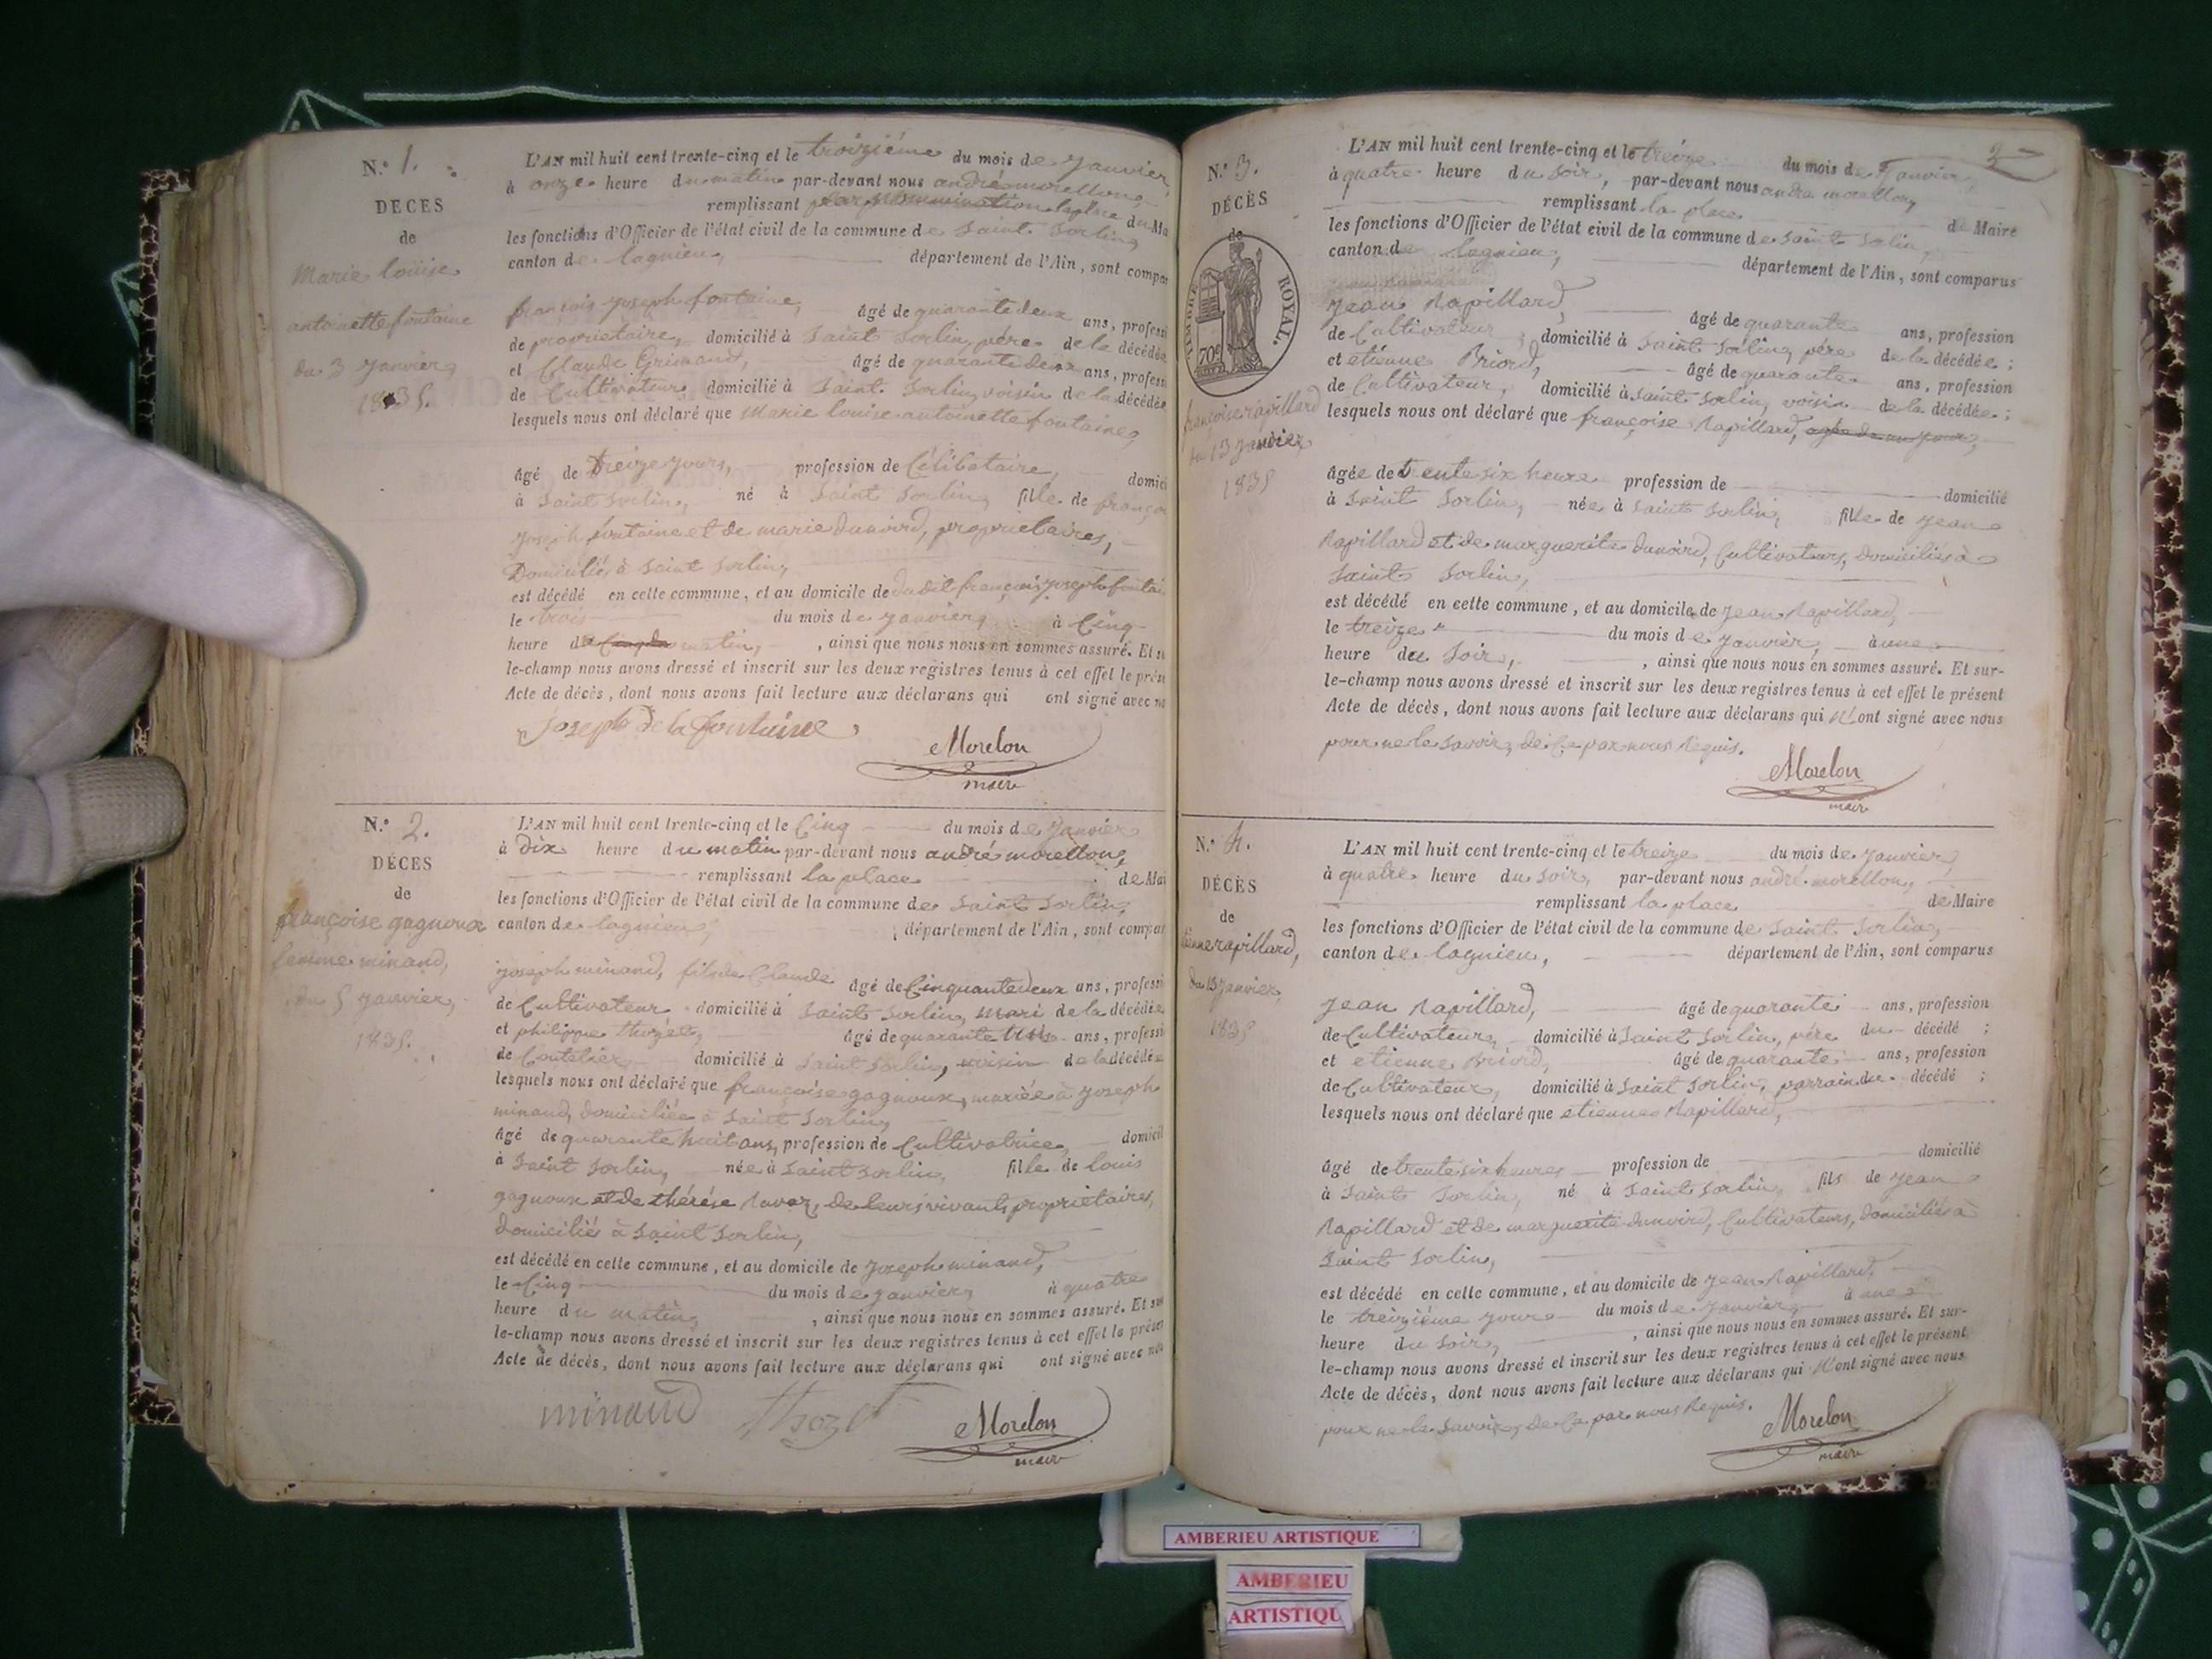 N.º 1.
DECES
de
Marie loüise
antoinette fontaine
du 3 Janvier
1835.
L'AN mil huit cent trente-cinq et le troizième du mois de Janvier,
à onze heure du matin par-devant nous andré morellon
remplissant la place du Ma
les fonctions d'Officier de l'état civil de la commune de Saint Sorlin,
canton de lagnieu, département de l'Ain, sont compar
françois joseph fontaine, âgé de quarante deux ans, professi
de proprietaire, domicilié à Saint Sorlin, père de la décédée
et Claude Grimand, âgé de quarante deux ans, professi
de Cultivateur, domicilié à Saint Sorlin, voisin de la décédée,
lesquels nous ont déclaré que Marie louise antoinette fontaine,
âgé de treize jours, profession de Célibataire, domici
à Saint Sorlin, né à Saint Sorlin, fille de françoi
joseph fontaine et de marie dunoird, proprietaires,
Domiciliés à Saint Sorlin,
est décédé en cette commune, et au domicile de dudit françois joseph fontai
le trois du mois de janvier, à Cinq
heure du matin, , ainsi que nous nous en sommes assuré. Et su
le-champ nous avons dressé et inscrit sur les deux registres tenus à cet effet le prés
Acte de décès, dont nous avons fait lecture aux déclarans qui ont signé avec no
Joseph de la fontaine
Morelon
maire
N.º 2.
DÉCES
de
françoise gagnoux
femme minand,
du 5 janvier,
1835.
L'AN mil huit cent trente-cinq et le Cinq du mois de Janvier
à Dix heure du matin par-devant nous andré morellon,
remplissant la place de Mai
les fonctions d'Officier de l'état civil de la commune de Saint Sorlin,
canton de lagnieu, département de l'Ain, sont compar
joseph minand, fils de Claude âgé de Cinquante deux ans, professi
de Cultivateur domicilié à Saint Sorlin, mari de la décédée
et philippe thozet, âgé de quarante ans, professi
de Coutelier domicilié à Saint Sorlin, voisin de la décédée
lesquels nous ont déclaré que françoise gagnoux, mariée à joseph
minand, domiciliée à Saint Sorlin,
âgé de quarante huit ans, profession de Cultivatrice, domicil
à Saint Sorlin, née à Saint Sorlin, fille de louis
gagnoux et de thérèse, de leurs vivants propriétaires,
domiciliés à Saint Sorlin,
est décédé en cette commune, et au domicile de joseph minand,
le Cinq du mois de janvier, à quatre
heure du matin, , ainsi que nous nous en sommes assuré. Et su
le-champ nous avons dressé et inscrit sur les deux registres tenus à cet effet le prése
Acte de décès, dont nous avons fait lecture aux déclarans qui ont signé avec no
minand thozet
Morelon
maire
2
N.º 3.
DÉCÈS
de
TIMBRE ROYAL.
70c
françoise rapillard
du 13 janvier
1835
L'AN mil huit cent trente-cinq et le treize du mois de Janvier,
à quatre heure du Soir, par-devant nous andré morellon,
remplissant la place de Maire
les fonctions d'Officier de l'état civil de la commune de Saint Sorlin
canton de lagnieu, département de l'Ain, sont comparus
Jean Rapillard, âgé de quarante ans, profession
de Cultivateur, domicilié à Saint Sorlin, père de la décédée ;
et etienne Briord, âgé de quarante ans, profession
de Cultivateur, domicilié à Saint Sorlin, voisin de la décédée ;
lesquels nous ont déclaré que françoise Rapillard, agée de un jour,
âgée de trente six heure profession de domicilié
à Saint Sorlin, née à Saint Sorlin, fille de jean
Rapillard et de marguerite dunoird, Cultivateurs, domiciliés à
Saint Sorlin,
est décédé en cette commune, et au domicile de jean Rapillard,
le treize du mois de janvier, à une
heure du Soir, , ainsi que nous nous en sommes assuré. Et sur-
le-champ nous avons dressé et inscrit sur les deux registres tenus à cet effet le présent
Acte de décès, dont nous avons fait lecture aux déclarans qui n'ont signé avec nous
pour ne le savoir, de Ce par nous Requis.
Morelon
maire
N.º 4.
DÉCÈS
de
etienne rapillard,
du 13 janvier,
1835
L'AN mil huit cent trente-cinq et le treize du mois de janvier,
à quatre heure du Soir, par-devant nous andré morellon,
remplissant la place de Maire
les fonctions d'Officier de l'état civil de la commune de Saint Sorlin,
canton de lagnieu, département de l'Ain, sont comparus
Jean Rapillard, âgé de quarante ans, profession
de Cultivateur, domicilié à Saint Sorlin, père du décédé ;
et etienne Briord, âgé de quarante ans, profession
de Cultivateur, domicilié à Saint Sorlin, parrain du décédé ;
lesquels nous ont déclaré que etienne Rapillard,
âgé de trente six heures profession de domicilié
à Saint Sorlin, né à Saint Sorlin, fils de jean
Rapillard et de marguerite dunoird, Cultivateurs, domiciliés à
Saint Sorlin,
est décédé en cette commune, et au domicile de jean Rapillard,
le treizième jour du mois de janvier, à une
heure du Soir, , ainsi que nous nous en sommes assuré. Et sur-
le-champ nous avons dressé et inscrit sur les deux registres tenus à cet effet le présent
Acte de décès, dont nous avons fait lecture aux déclarans qui n'ont signé avec nous
pour ne le savoir, de Ce par nous Requis.
Morelon
maire
AMBERIEU ARTISTIQUE
AMBERIEU
ARTISTIQU